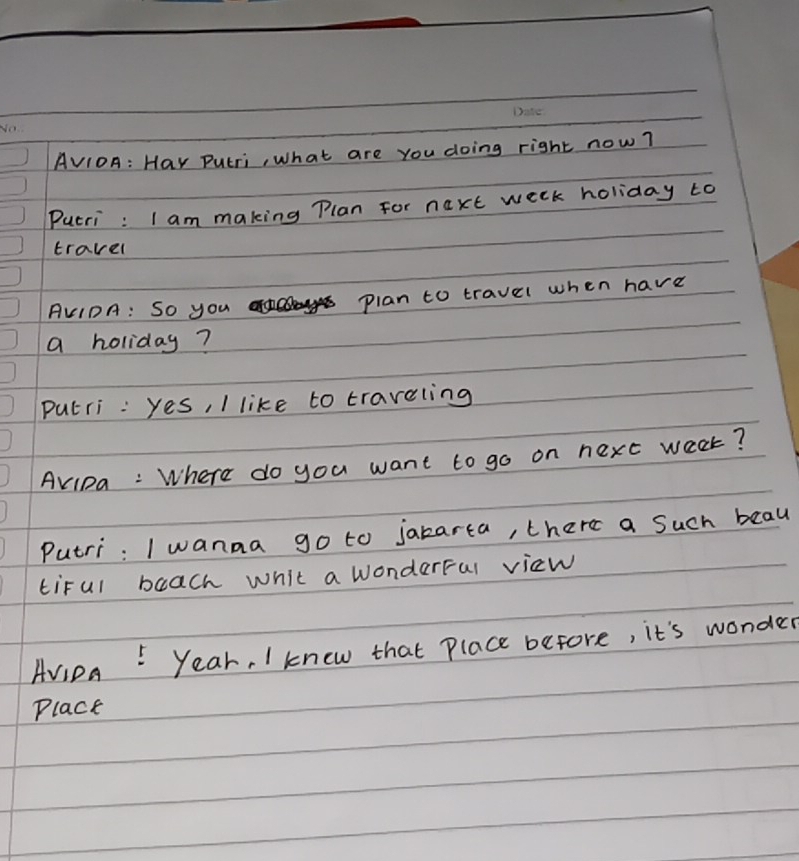 No.
Date
AVIDA : Hay Putri, what are you doing right now?
Putri : I am making Plan for next week holiday to
travel
AVIDA : So you plan to travel when have
a holiday ?
Putri : Yes, I like to traveling
AVIDa : Where do you want to go on next week?
Putri : I wanna go to jakarta, there a such beau
tiful baach whit a wonderful view
AVIDA : Yeah, I knew that place before, it's wonder
Place